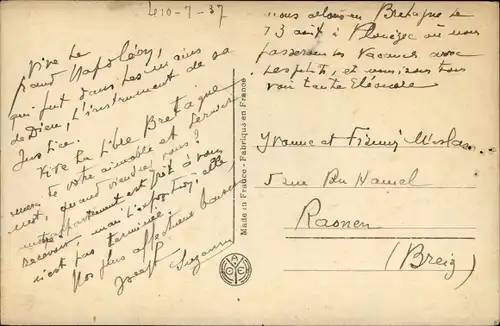 10-7-37
Vive le
grand Napoléon,
qui fut dans les mains
de Dieu, l'instrument de sa
Justice.
Vive la Libre Bretagne
merci de votre aimable et
mot, quand viendrez vous?
notre appartement est prêt à vous
recevoir, mais l'expo, elle,
n'est pas terminée.
Nos plus affectueux baisers
Joseph Suzanne
Made in France - Fabriqué en France
nous allons en Bretagne le
13 août à Plouézec où nous
passerons les vacances avec
les petits, et nous irons tous
voir tante Eléonore
Yvonne et
5 rue Du Hamel
Rasnen
(Breiz)